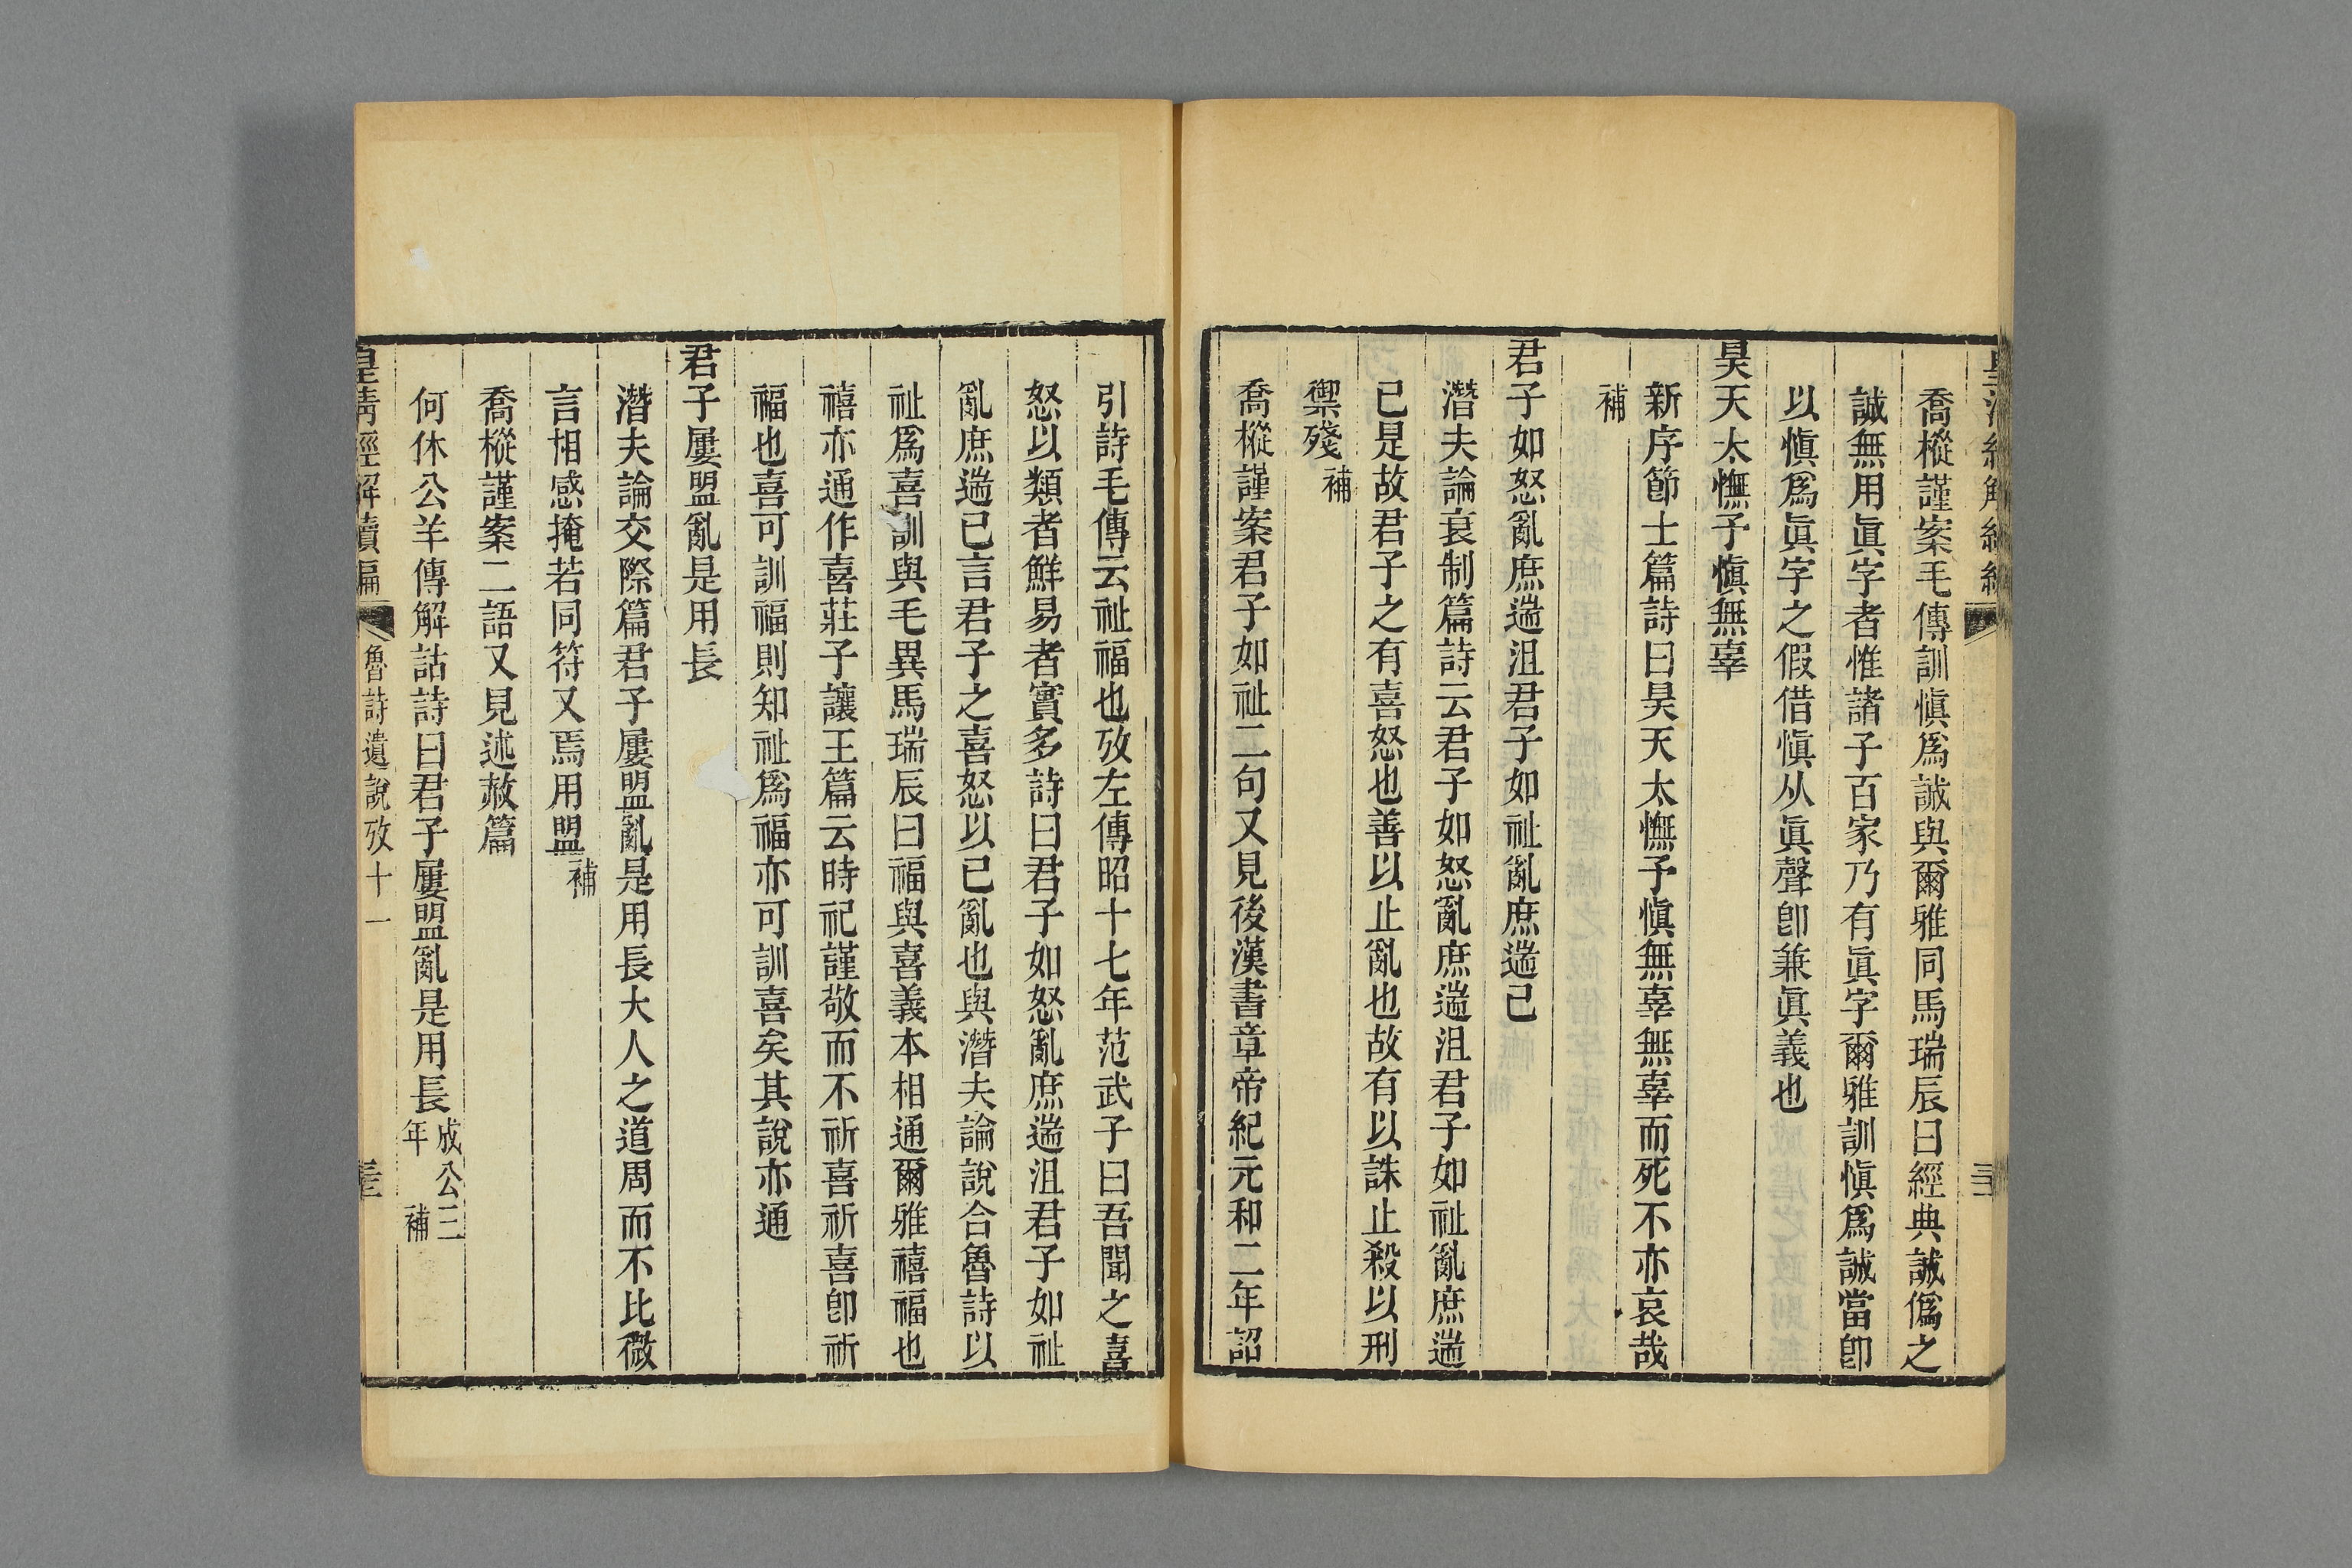 喬樅謹案毛傳訓愼爲誠與爾雅同馬瑞辰曰經典誠僞之
誠無用眞字者惟諸子百家乃有眞字爾雅訓愼爲誠當卽
以愼爲眞字之假借愼从眞聲卽兼眞義也
昊天太憮予愼無辜
新序節士篇詩曰昊天太憮予愼無辜無辜而死不亦哀哉
補
君子如怒亂庶遄沮君子如祉亂庶遄已
潛夫論衰制篇詩云君子如怒亂庶遄沮君子如祉亂庶遄
已是故君子之有喜怒也善以止亂也故有以誅止殺以刑
禦殘補
喬樅謹案君子如祉二句又見後漢書章帝紀元和二年詔
引詩毛傳云祉福也攷左傳昭十七年范武子曰吾聞之喜
怒以類者鮮易者實多詩曰君子如怒亂庶遄沮君子如祉
亂庶遄已言君子之喜怒以已亂也與潛夫論說合魯詩以
祉爲喜訓與毛異馬瑞辰曰福與喜義本相通爾雅禧福也
禧亦通作喜莊子讓王篇云時祀謹敬而不祈喜祈喜卽祈
福也喜可訓福則知祉爲福亦可訓喜矣其說亦通
君子屢盟亂是用長
潛夫論交際篇君子屢盟亂是用長大人之道周而不比微
言相感掩若同符又焉用盟補
喬樅謹案二語又見述赦篇
何休公羊傳解詁詩曰君子屢盟亂是用長成公三年 補
皇淸經解續編 魯詩遺說攷十一